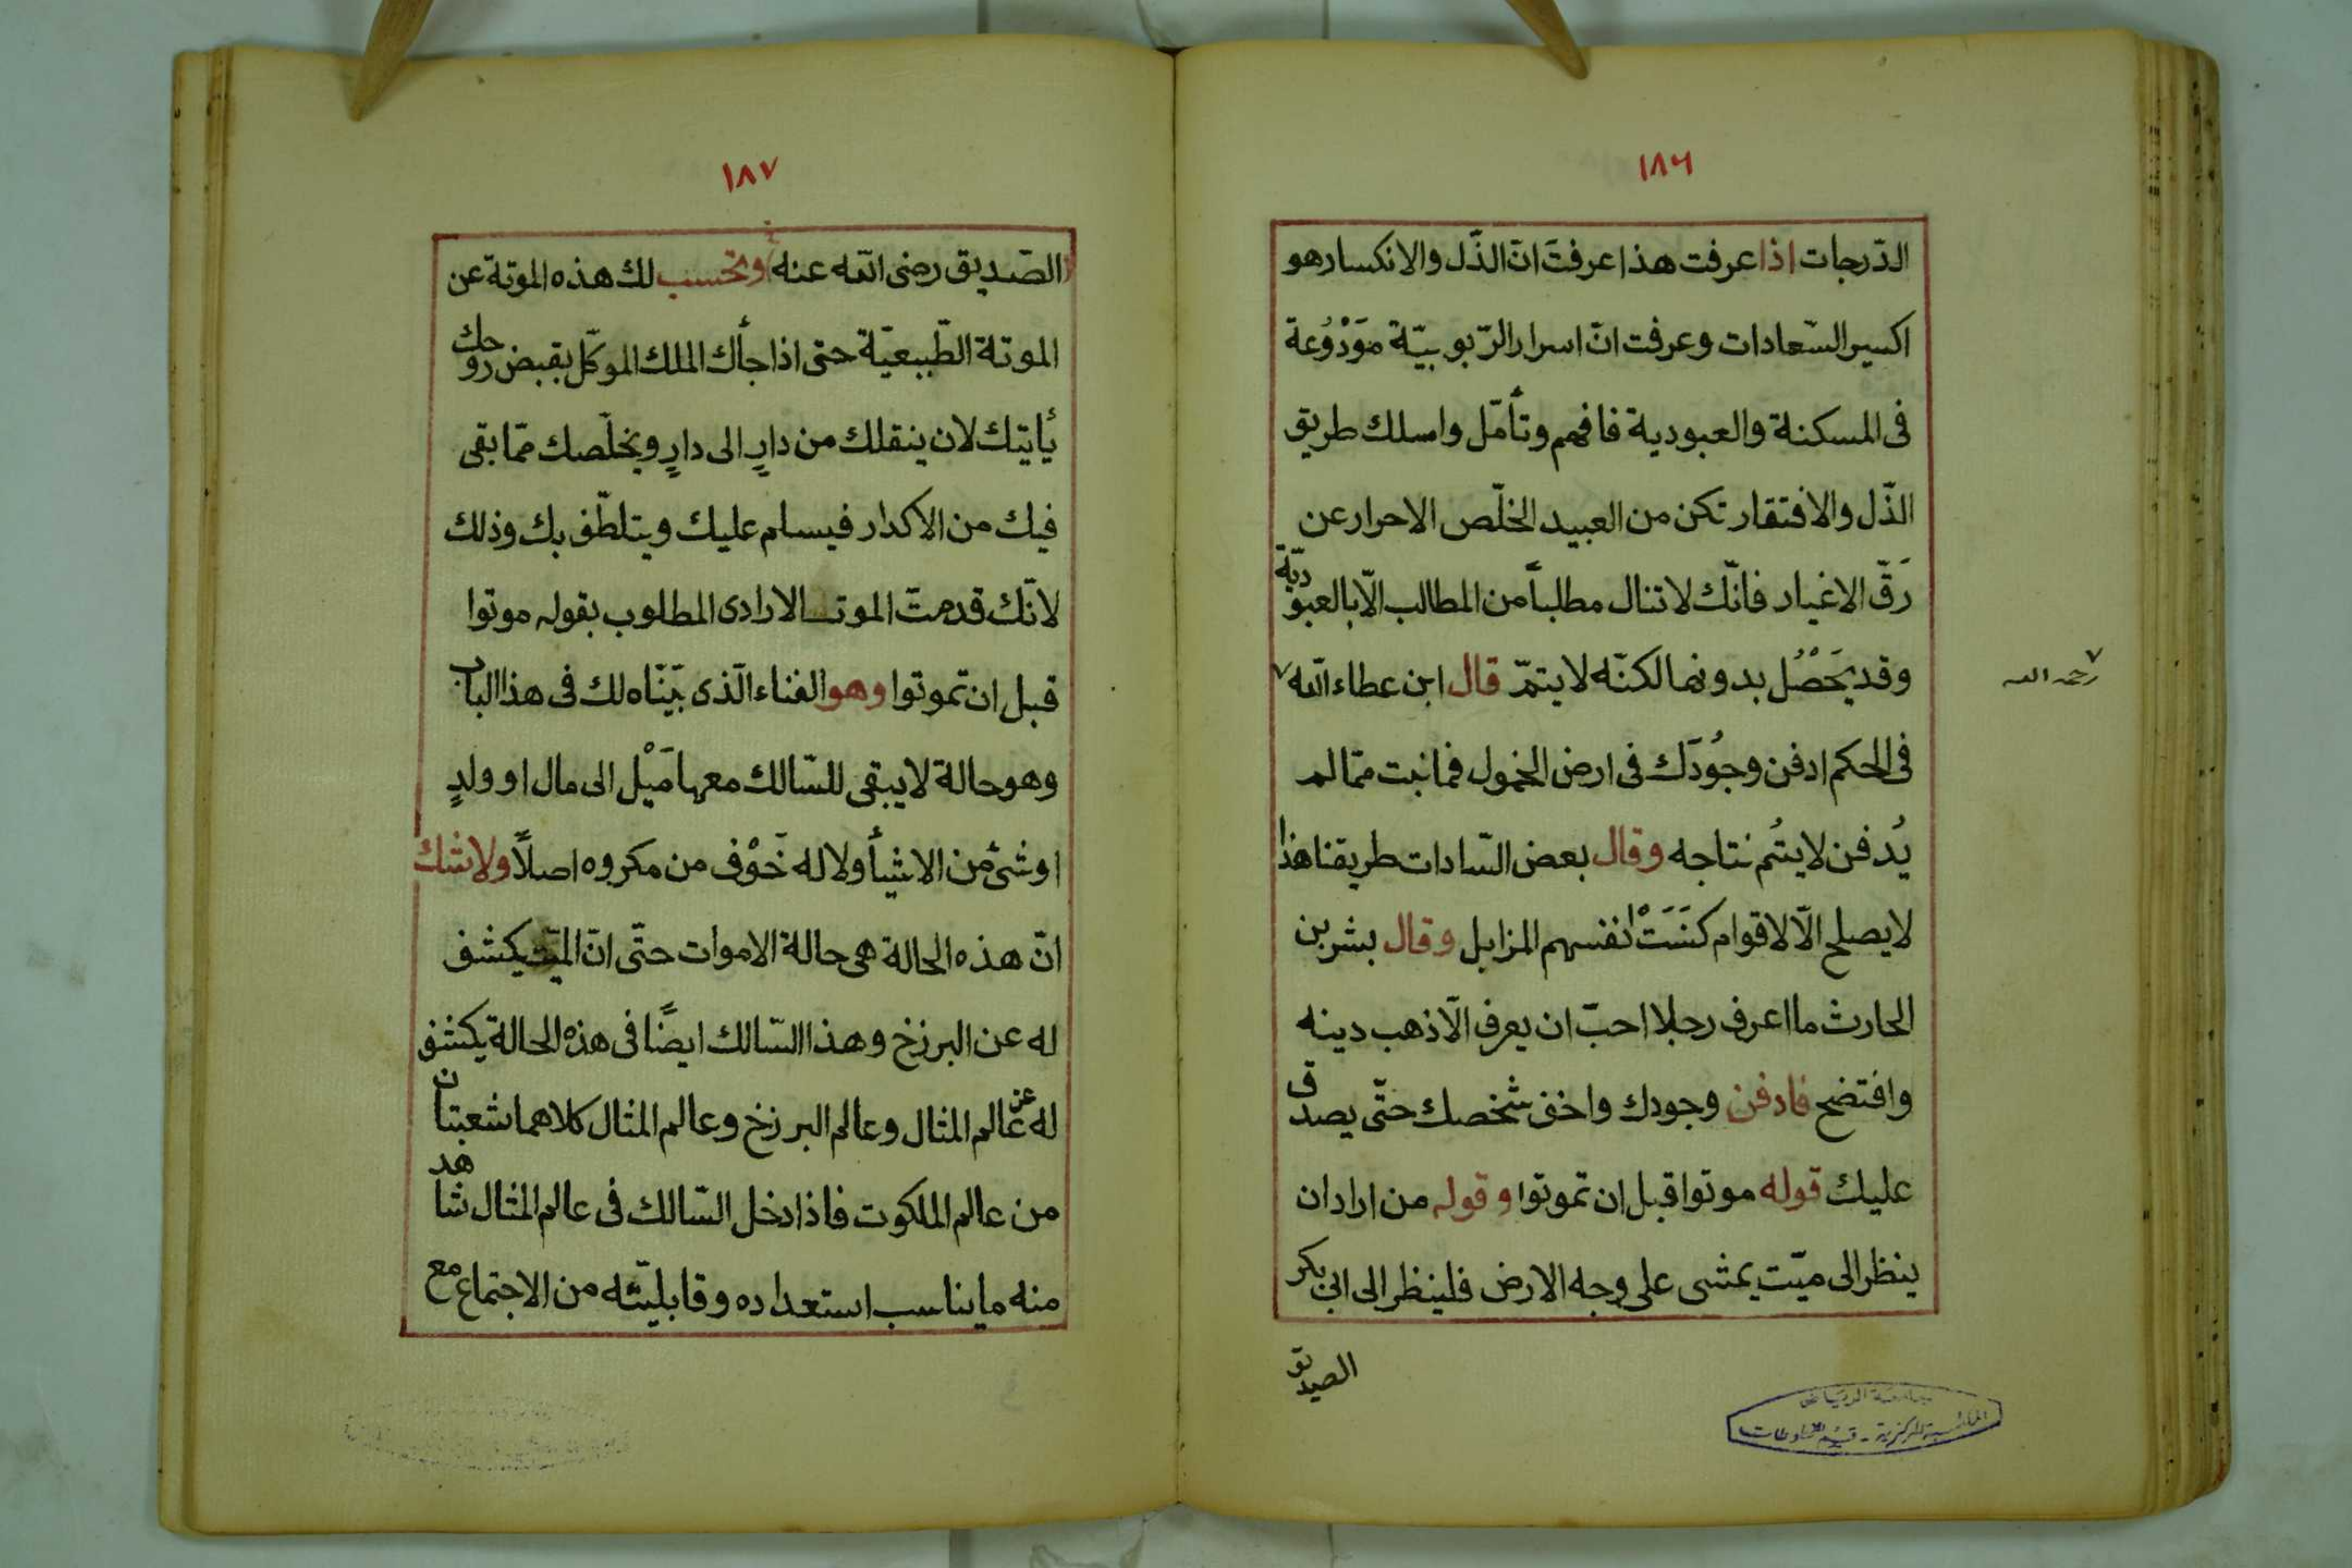 ١٨٦
الدّرجات اذا عرفت هذا عرفتَ انّ الذّل والانكسار هو
اكسير السّعادات وعرفت انّ اسرار الرّبوبيّة مَوْدُوُعة
فى المسكنة والعبودية فافهم وتأمّل واسلك طريق
الذّل والافتقار تكن من العبيد الخلّص الاحرار عن
رَقّ الاغيار فانّك لاتنال مطلباً من المطالب الّا بالعبوديّة
وقد يَحْصُل بدونها لكنّه لايتمّ قال ابن عطاء اللّه ٧
٧ رحمه الله
فى الحكم ادفن وجُودَك فى ارض الخمول فما نبت ممّا لم
يُدفن لايتُم نتاجه وقال بعض السّادات طريقنا هذا
لايصلح الّا لاقوام كنَسَتْ انفسهم المزابل وقال بشر بن
الحارث ما اعرف رجلا احبّ ان يعرف الّا ذهب دينه
وافتضح فادفن وجودك واخف شخصك حتّى يصدق
عليك قوله موتوا قبل ان تموتوا وقوله من اراد ان
ينظر الى ميّت يمشى على وجه الارض فلينظر الى ابى بكر
الصديق
جامعة الرياض
المكتبة المركزية - قسم المخطوطات
١٨٧
الصّديق رضى اللّه عنه وتحسب لك هذه الموتة عن
الموتة الطّبيعيّة حتى اذا جأك الملك الموكّل بقبض روحك
يأتيك لان ينقلك من دارٍ الى دارٍ ويخلّصك ممّا بقى
فيك من الاكدار فيسلم عليك ويتلطّف بك وذلك
لانّك قد متّ الموت الارادى المطلوب بقوله موتوا
قبل ان تموتوا وهو الفناء الّذى بيّنّاه لك فى هذا الباب
وهو حالة لايبقى للسّالك معها مَيْل الى مال او ولدٍ
او شئ من الاشيأ ولا له خَوْف من مكروه اصلاً ولاشك
انّ هذه الحالة هى حالة الاموات حتّى انّ الميّت يكشف
له عن البرزخ وهذا السّالك ايضًا فى هذه الحالة يكشف
له عن عالم المثال وعالم البرزخ وعالم المثال كلاهما شعبتان
من عالم الملكوت فاذا دخل السّالك فى عالم المثال شاهد
منه ما يناسب استعداده وقابليّته من الاجتماع مع